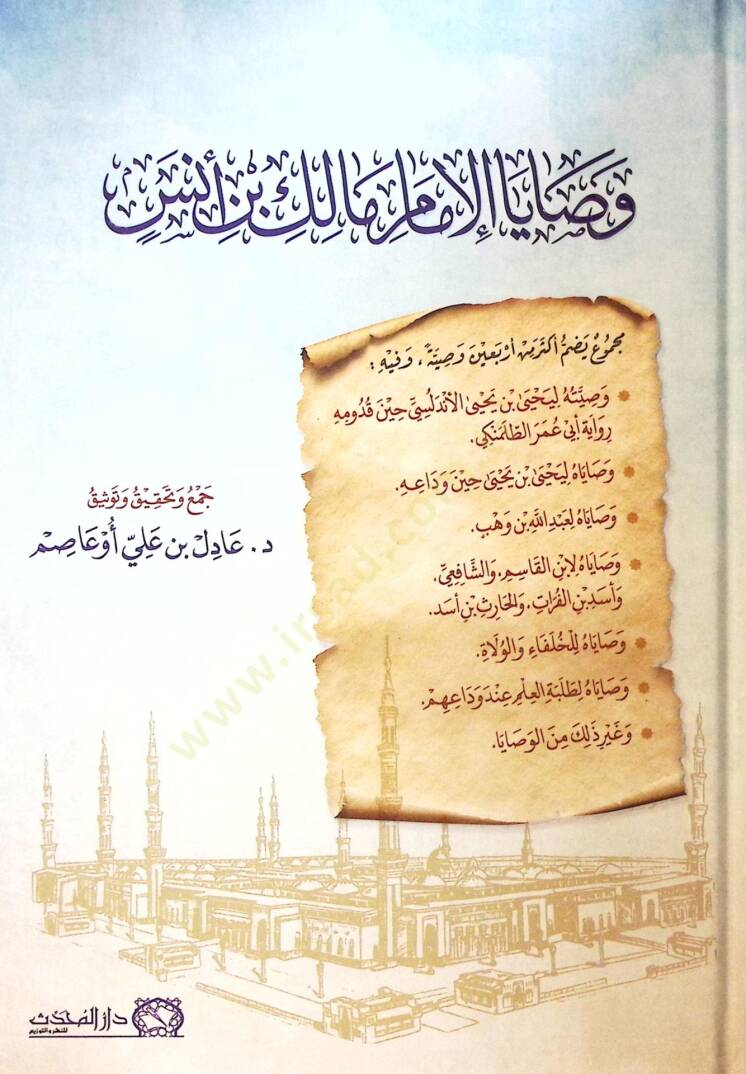 وَصَايَا الإِمَامِ مَالِكِ بْنِ أَنَسٍ
مجموعٌ يَضمُّ أكثرَ مِن أربَعينَ وَصِيَّةً، وَفيْهِ:
وَصِيَّتُهُ لِيَحْيَى بْنِ يَحْيَى الأَنْدَلُسِيِّ حِيْنَ قُدُومِهِ
رِوَايَة أَبِي عُمَرَ الطَّلَمَنْكِي.
وَصَايَاهُ لِيَحْيَى بْنِ يَحْيَى حِيْنَ وَدَاعِهِ.
وَصَايَاهُ لِعَبْدِ اللَّهِ بْنِ وَهْبٍ.
وَصَايَاهُ لِابْنِ القَاسِمِ، وَالشَّافِعِيِّ،
وَأَسَدِ بْنِ الفُرَاتِ، وَالحَارِثِ بْنِ أَسَد.
وَصَايَاهُ لِلْخُلَفَاءِ وَالوُلَاةِ.
وَصَايَاهُ لِطَلَبَةِ العِلْمِ عِنْدَ وَدَاعِهِمْ.
وَغَيْرِ ذَلِكَ مِنَ الوَصَايَا.
جَمْعُ وَتَحْقِيْقُ وَتَوْثِيقُ
د. عَادِل بن عَلِيّ أُوعَاصِم
دار المحدث
للنشر والتوزيع